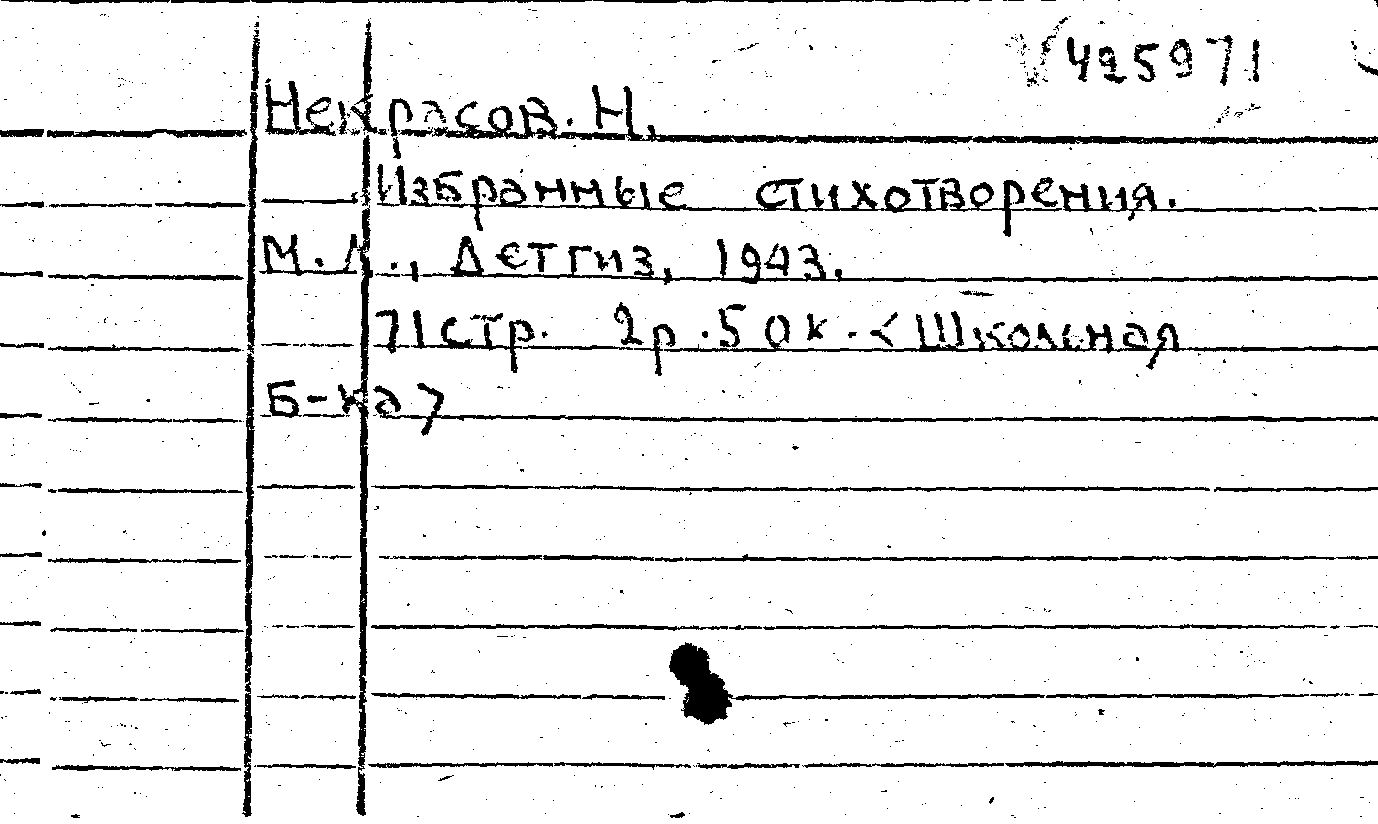 V 425971
Некрасов. Н.
Избранные стихотворения.
М.Л., Детгиз, 1943.
71стр. 2р.50к. <Школьная
Б-ка>